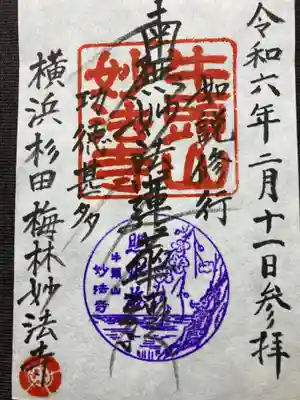 令和六年二月十一日参拝
如説修行
南無妙法蓮華経
功徳甚多
横浜杉田梅林妙法寺
牛頭山
妙法寺
牛頭山
妙法寺